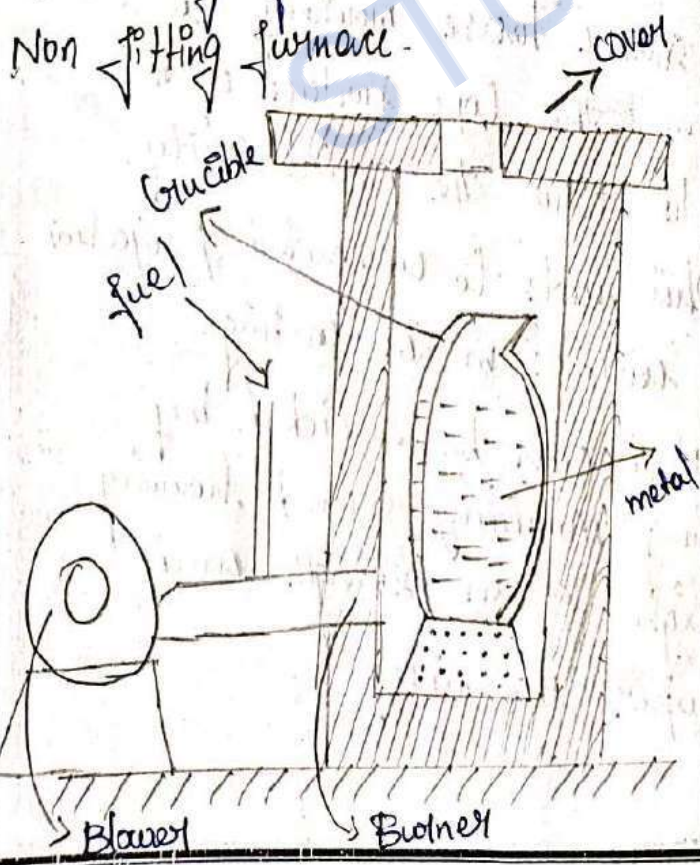 Non jitting furnace.
cover
Crucible
fuel
metal
Blower
Burner
STU